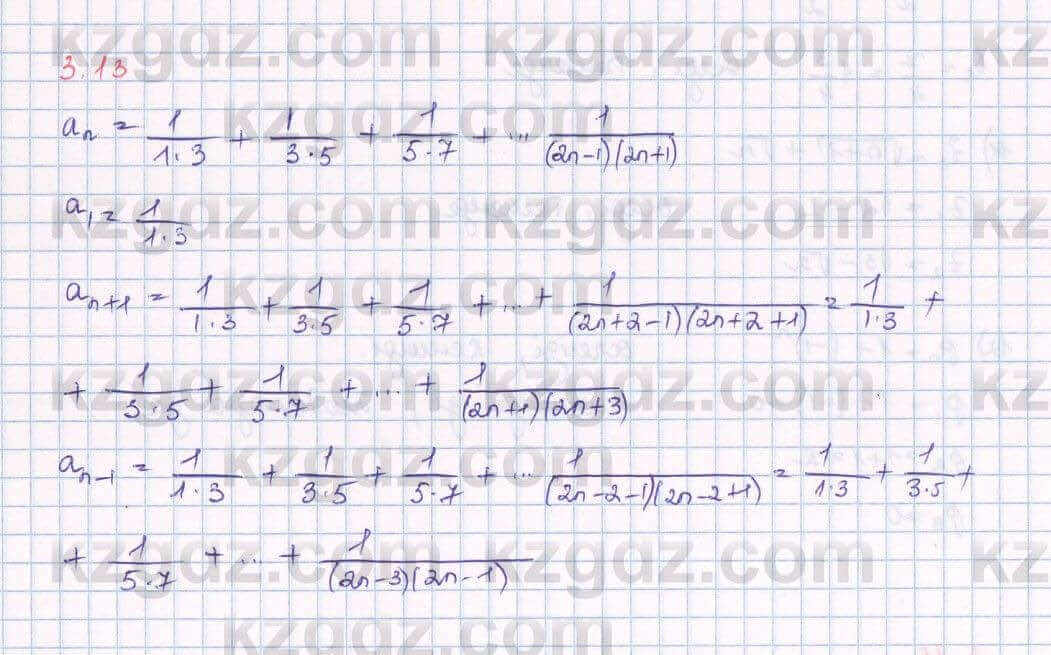 3.13
aₙ = 1/(1·3) + 1/(3·5) + 1/(5·7) + ... 1/((2n-1)(2n+1))
a₁ = 1/(1·3)
aₙ₊₁ = 1/(1·3) + 1/(3·5) + 1/(5·7) + ... + 1/((2n+2-1)(2n+2+1)) = 1/(1·3) +
+ 1/(3·5) + 1/(5·7) + ... + 1/((2n+1)(2n+3))
aₙ₋₁ = 1/(1·3) + 1/(3·5) + 1/(5·7) + ... 1/((2n-2-1)(2n-2+1)) = 1/(1·3) + 1/(3·5) +
+ 1/(5·7) + ... + 1/((2n-3)(2n-1))
kzgdz.com kzgdz.com kz
kzgdz.com
kzgdz.com kzgdz.com kz
kzgdz.com
kzgdz.com kzgdz.com kz
kzgdz.com
kzgdz.com kzgdz.com kz
kzgdz.com